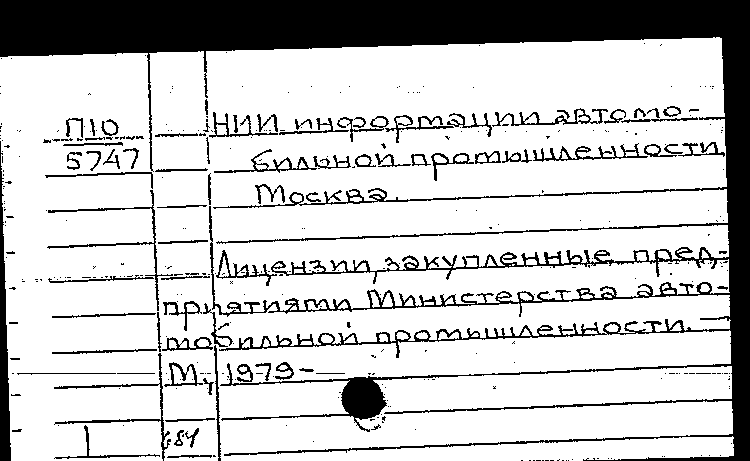 П10
5747
НИИ информации автомо-
бильной промышленности
Москва.
Лицензии, закупленные пред-
приятиями Министерства авто-
мобильной промышленности. —
М., 1979-
1 684